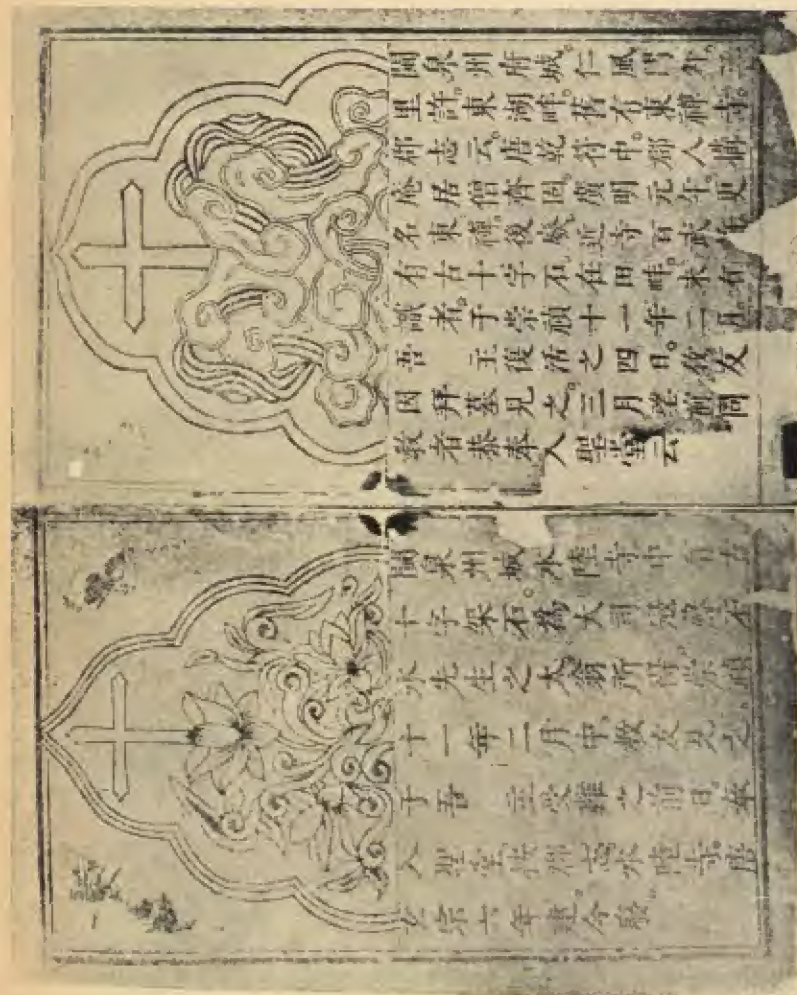 閩泉州府城。仁風門外。三
里許。東湖畔。舊有東禪寺。
郡志云。唐乾符中。郡人搆
庵居僧齊固。廣明元年。更
名東禪。後廢。近寺百武
有古十字石。在田畔。未有
識者。于崇禎十一年二月
吾 主復活之四日。教友
因拜墓見之。三月望前同
教者恭奉入聖堂云
閩泉州城水陸寺中有古
十字架石。為大司寇蘇石
水先生之太翁所得。崇禎
十一年二月中。教友見之
于吾 主受難之前日。奉
入聖堂。按郡志。水陸寺。唐
玄宗六年建。今廢。